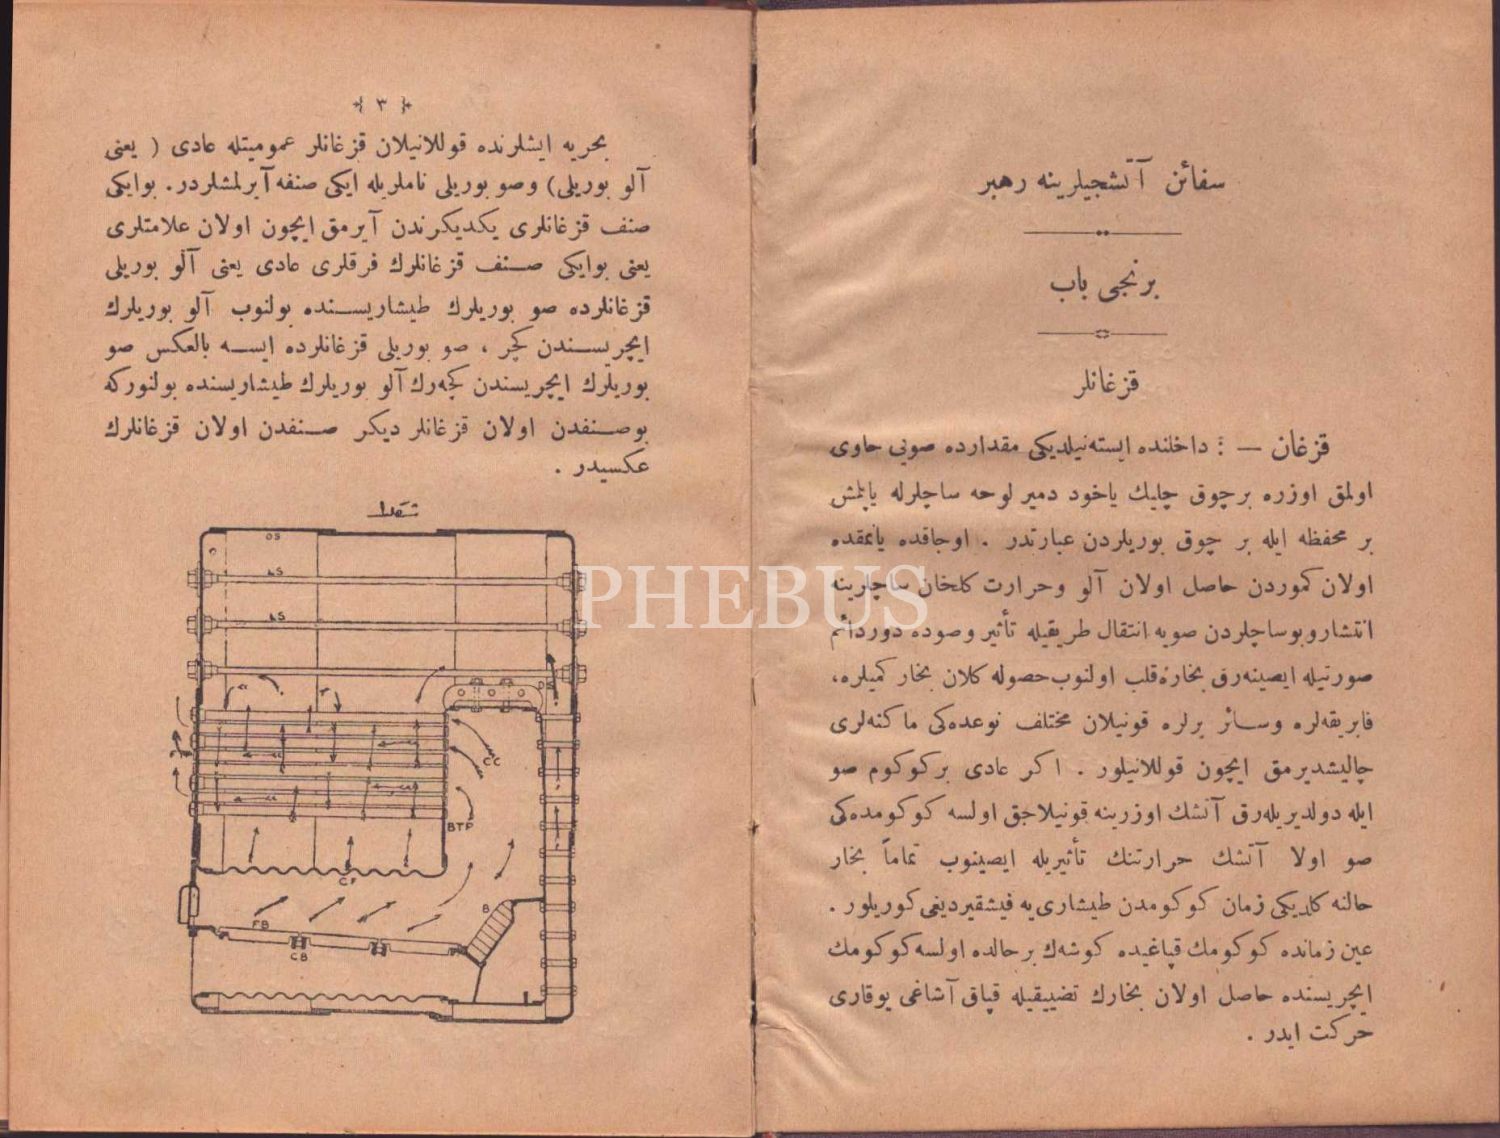 سفائن آتشجیلرینه رهبر
برنجی باب
قزغانلر
قزغان — : داخلنده ایسته‌نیلدیکی مقدارده صویی حاوی
اولمق اوزره برچوق چلیك یاخود دمیر لوحه ساچلرله یاپلمش
بر محفظه ایله بر چوق بوریلردن عبارتدر . اوجاقده یانمقده
اولان کموردن حاصل اولان آلو وحرارت کلخان ساچلرینه
انتشار وبوساچلردن صویه انتقال طریقیله تأثیر وصوده دوردائم
صورتیله ایصینه‌رق بخاره قلب اولنوب حصوله کلان بخار کمیلره،
فابریقه‌لره وسائر یرلره قونیلان مختلف نوعده‌کی ماکنه‌لری
چالیشدیرمق ایچون قوللانیلور . اکر عادی برکوکوم صو
ایله دولدیریله‌رق آتشك اوزرینه قونیلاجق اولسه کوکومده‌کی
صو اولا آتشك حرارتنك تأثیریله ایصینوب تماماً بخار
حالنه کلدیکی زمان کوکومدن طیشاری‌یه فیشقیردیغی کوریلور .
عین زمانده کوکومك قپاغیده کوشه‌ك برحالده اولسه کوکومك
ایچریسنده حاصل اولان بخارك تضییقیله قپاق آشاغی یوقاری
حرکت ایدر .
٣
بحریه ایشلرنده قوللانیلان قزغانلر عمومیتله عادی ( یعنی
آلو بوریلی) وصو بوریلی ناملریله ایکی صنفه آیرلمشلردر. بوایکی
صنف قزغانلری یکدیکرندن آیرمق ایچون اولان علامتلری
یعنی بوایکی صنف قزغانلرك فرقلری عادی یعنی آلو بوریلی
قزغانلرده صو بوریلرك طیشاریسنده بولنوب آلو بوریلرك
ایچریسندن کچر ، صو بوریلی قزغانلرده ایسه بالعکس صو
بوریلرك ایچریسندن کچه‌رك آلو بوریلرك طیشاریسنده بولنورکه
بوصنفدن اولان قزغانلر دیکر صنفدن اولان قزغانلرك
عکسیدر .
شکل ١
CC
BTP
CF
B
FB
CB
PHEBUS